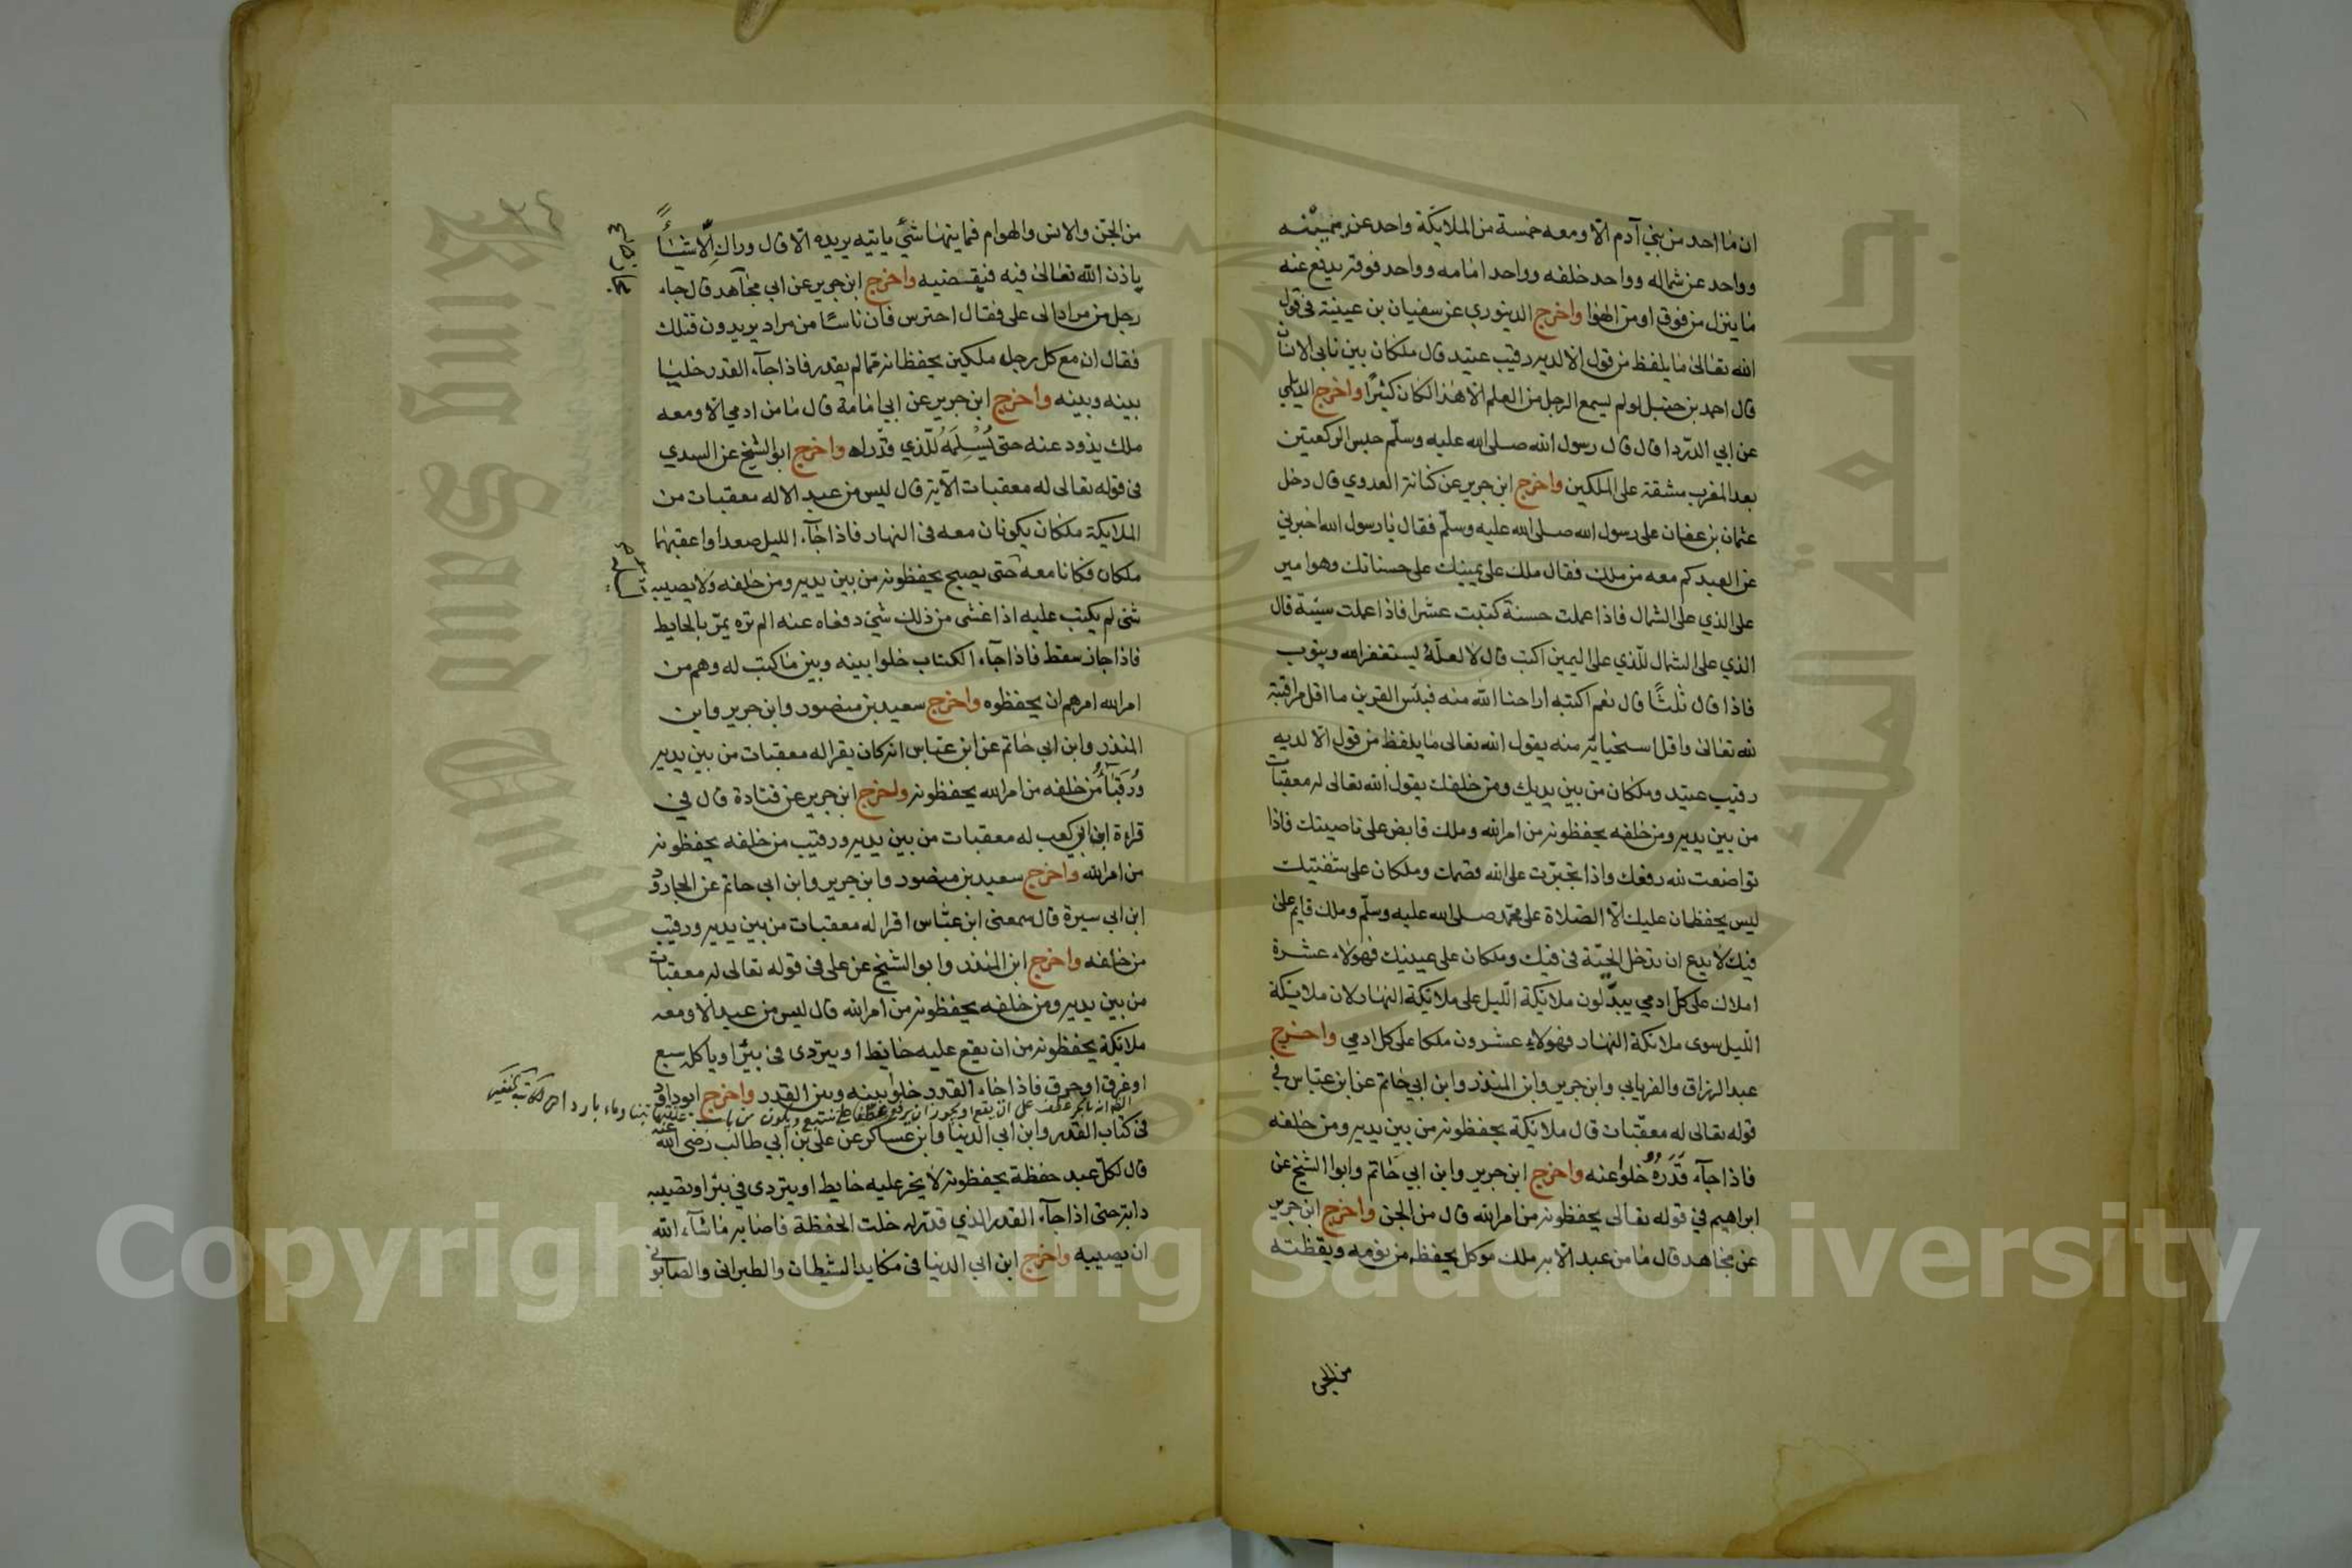 ان ما احد من بني آدم الا ومعه خمسة من الملايكة واحد عن يمينه
وواحد عن شماله وواحد خلفه وواحد امامه وواحد فوقه يدفع عنه
ما ينزل من فوق او من الهوا واخرج الدينوري عن سفيان بن عيينة في قول
الله تعالى ما يلفظ من قول الا لديه رقيب عتيد قال ملكان بين نابي الانسان
قال احمد بن حنبل لو لم يسمع الرجل من العلم الا هذا لكان كثيرا واخرج الديلمي
عن ابي الدردا قال قال رسول الله صلى الله عليه وسلم حبس الركعتين
بعد المغرب مشقة على الملكين واخرج ابن جرير عن كنانة العدوي قال دخل
عثمان بن عفان على رسول الله صلى الله عليه وسلم فقال يا رسول الله اخبرني
عن العبد كم معه من ملك فقال ملك على يمينك على حسناتك وهو امير
على الذي على الشمال فاذا عملت حسنة كتبت عشرا فاذا عملت سيئة قال
الذي على الشمال للذي على اليمين اكتب قال لا لعله يستغفر الله ويتوب
فاذا قال ثلثا قال نعم اكتبه اراحنا الله منه فبئس القرين ما اقل مراقبته
لله تعالى واقل استحيائه منه يقول الله تعالى ما يلفظ من قول الا لديه
رقيب عتيد وملكان من بين يديك ومن خلفك يقول الله تعالى له معقبات
من بين يديه ومن خلفه يحفظونه من امر الله وملك قابض على ناصيتك فاذا
تواضعت لله رفعك واذا تجبرت على الله قصمك وملكان على شفتيك
ليس يحفظان عليك الا الصلاة على محمد صلى الله عليه وسلم وملك قايم على
فيك لا يدع ان تدخل الحية في فيك وملكان على عينيك فهولاء عشرة
املاك على كل ادمي يبدلون ملائكة الليل على ملائكة النهار لان ملائكة
الليل سوى ملائكة النهار فهولاء عشرون ملكا على كل ادمي واخرج
عبد الرزاق والفريابي وابن جرير وابن المنذر وابن ابي حاتم عن ابن عباس في
قوله تعالى له معقبات قال ملائكة يحفظونه من بين يديه ومن خلفه
فاذا جآء قَدَرُهُ خلوا عنه واخرج ابن جرير وابن ابي حاتم وابوا الشيخ عن
ابراهيم في قوله تعالى يحفظونه من امر الله قال من الجن واخرج ابن جرير
عن مجاهد قال ما من عبد الا به ملك موكل يحفظه من نومه ويقظته
من الجن
من الجن والانس والهوام فما ينهنا شئ ياتيه يريده الا قال وراك الا شيئا
ياذن الله تعالى فيه فيقضيه واخرج ابن جرير عن ابي مجاهد قال جاء
رجل من مراد الى على فقال احترس فان ناسا من مراد يريدون قتلك
فقال ان مع كل رجل ملكين يحفظانه مما لم يقدر فاذا جآء القدر خليا
بينه وبينه واخرج ابن جرير عن ابي امامة قال ما من ادمي الا ومعه
ملك يذود عنه حتى يُسْلِمَهُ للذي قدر له واخرج ابو الشيخ عن السدي
في قوله تعالى له معقبات الاية قال ليس من عبد الا له معقبات من
الملايكة ملكان يكونان معه في النهار فاذا جآء الليل صعدا واعقبهما
ملكان فكانا معه حتى يصبح يحفظونه من بين يديه ومن خلفه ولا يصيبه
شئ لم يكتب عليه اذا غشى من ذلك شئ دفعاه عنه الم تره يمر بالحايط
فاذا جاز سقط فاذا جآء الكتاب خلوا بينه وبين ما كتب له وهم من
امر الله امرهم ان يحفظوه واخرج سعيد بن منصور وابن جرير وابن
المنذر وابن ابي حاتم عن ابن عباس انه كان يقرا له معقبات من بين يديه
ورقبآء من خلفه من امر الله يحفظونه واخرج ابن جرير عن قتادة قال في
قراءة ابي بن كعب له معقبات من بين يديه ورقيب من خلفه يحفظونه
من امر الله واخرج سعيد بن منصور وابن جرير وابن ابي حاتم عن الجارود
ابن ابي سبرة قال سمعنى ابن عباس اقرا له معقبات من بين يديه ورقيب
من خلفه واخرج ابن المنذر وابو الشيخ عن على في قوله تعالى له معقبات
من بين يديه ومن خلفه يحفظونه من امر الله قال ليس من عبد الا ومعه
ملائكة يحفظونه من ان يقع عليه حايط او يتردى في بئر او ياكله سبع
او غرق او حرق فاذا جاء القدر خلوا بينه وبين القدر واخرج ابو داود
في كتاب القدر وابن ابي الدنيا وابن عساكر عن على بن ابي طالب رضى الله عنه
قال لكل عبد حفظة يحفظونه لا يخر عليه حايط او يتردى في بئر او تصيبه
دابة حتى اذا جآء القدر الذي قدر له خلت الحفظة فاصابه ما شآء الله
ان يصيبه واخرج ابن ابي الدنيا في مكايد الشيطان والطبراني والصابوني
Copyright © King Saud University